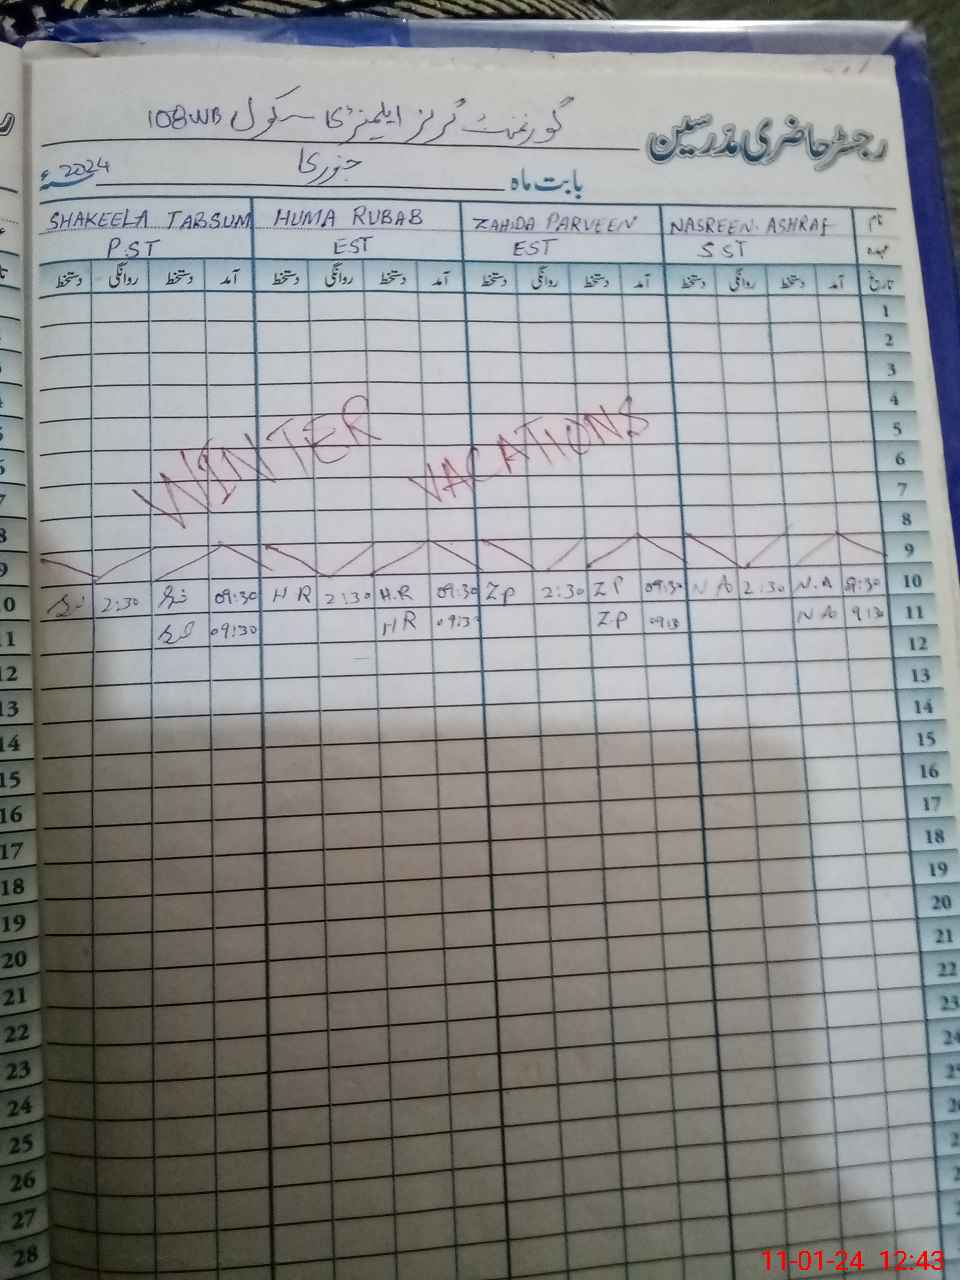 رجسٹر حاضری مدرسین
گورنمنٹ گرلز ایلیمنٹری سکول 108WB
بابت ماہ جنوری 2024ء
نام NASREEN. ASHRAF ZAHIDA PARVEEN HUMA RUBAB SHAKEELA TABSUM
عہدہ SST EST EST PST
تاریخ آمد دستخط روانگی دستخط آمد دستخط روانگی دستخط آمد دستخط روانگی دستخط آمد دستخط روانگی دستخط
1
2
3
4
5
6
7
8
9
WINTER VACATIONS
10 09:30 N.A 2:30 NA 09:30 ZP 2:30 Z.P 09:30 H.R 2:30 HR 09:30 2:30
11 9:30 NA Z.P 09:3 HR 09:30
12
13
14
15
16
17
18
19
20
21
22
23
24
25
26
27
28
11-01-24 12:43